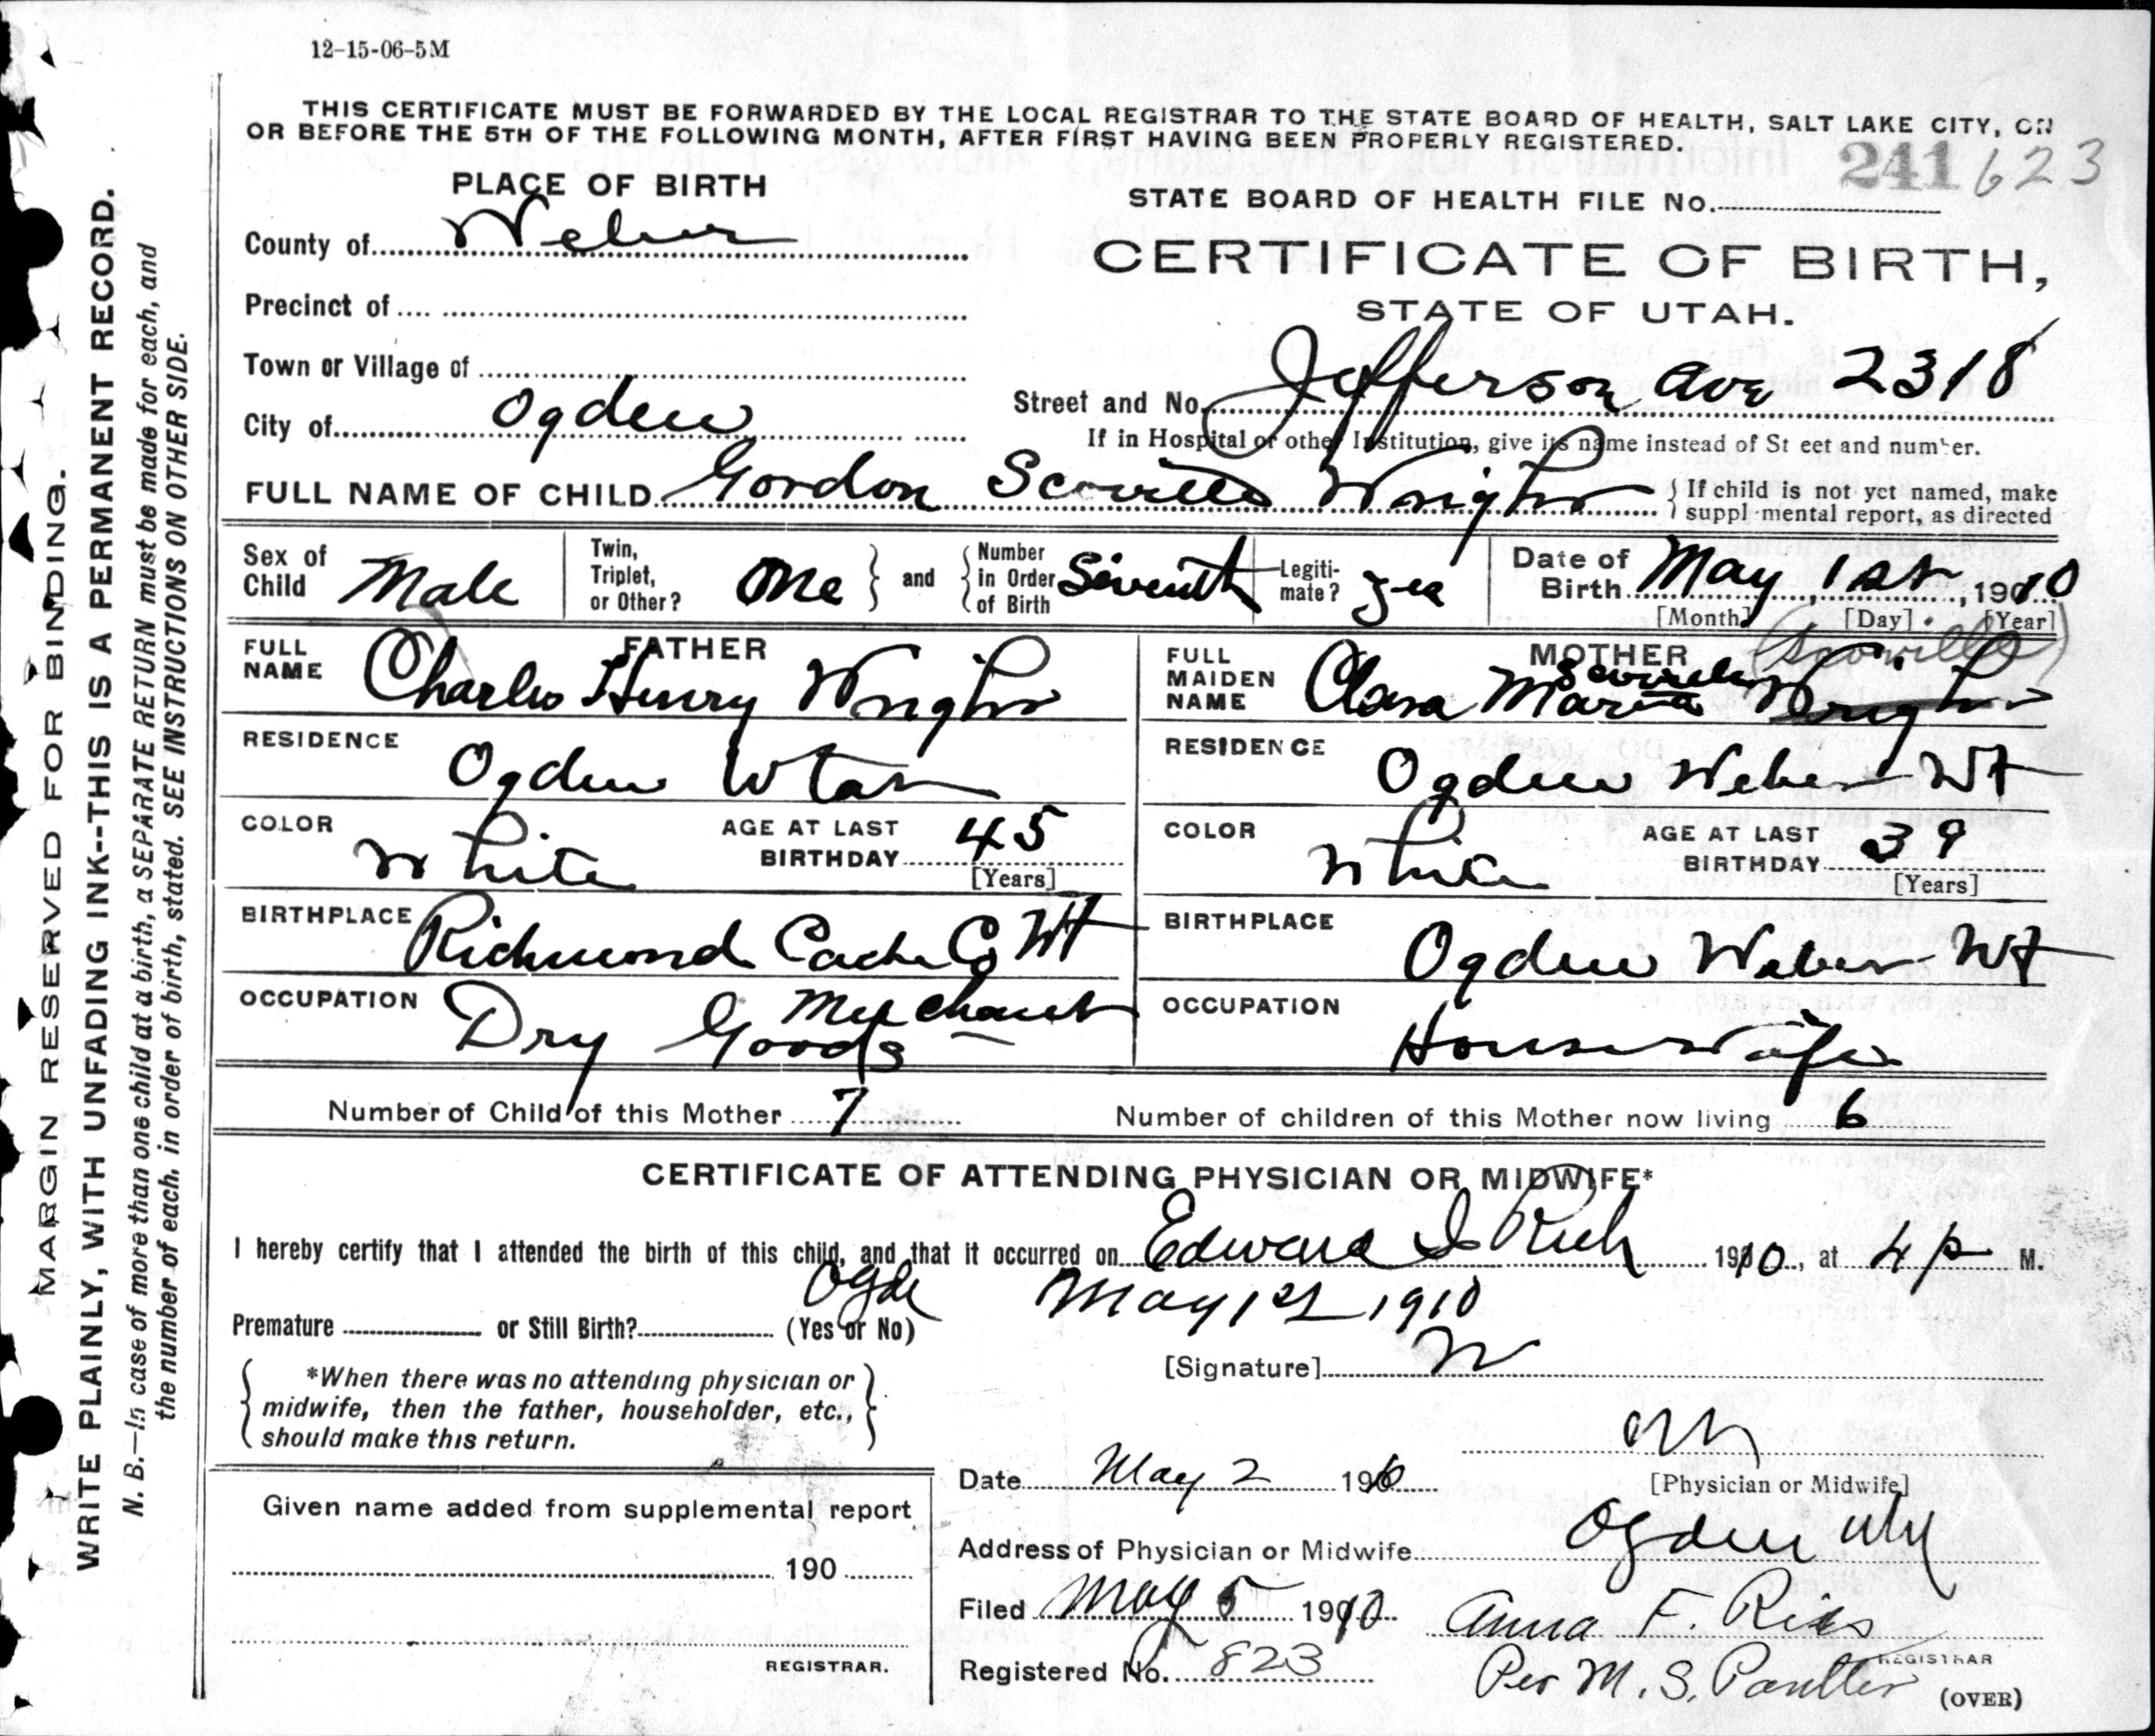 12-15-06-5M
THIS CERTIFICATE MUST BE FORWARDED BY THE LOCAL REGISTRAR TO THE STATE BOARD OF HEALTH, SALT LAKE CITY, ON
OR BEFORE THE 5TH OF THE FOLLOWING MONTH, AFTER FIRST HAVING BEEN PROPERLY REGISTERED.
241 623
PLACE OF BIRTH
STATE BOARD OF HEALTH FILE No.
County of Weber
CERTIFICATE OF BIRTH,
STATE OF UTAH.
Precinct of
Town or Village of
Street and No. Jefferson Ave 2318
City of Ogden
If in Hospital or other Institution, give its name instead of St eet and number.
FULL NAME OF CHILD Gordon Scoville Wright
{ If child is not yet named, make
suppl mental report, as directed
Sex of Child Male
Twin, Triplet, or Other? One } and { Number in Order of Birth Seventh
Legiti-mate? Yes
Date of Birth May, 1st, 1910
[Month] [Day] [Year]
FATHER
FULL NAME Charles Henry Wright
MOTHER (Scoville)
FULL MAIDEN NAME Clara Maria Scoville Wright
RESIDENCE Ogden Utah
RESIDENCE Ogden Weber Ut
COLOR White
AGE AT LAST BIRTHDAY 45
[Years]
COLOR White
AGE AT LAST BIRTHDAY 39
[Years]
BIRTHPLACE Richmond Cache Co Ut
BIRTHPLACE Ogden Weber Ut
OCCUPATION Dry Goods Merchant
OCCUPATION Housewife
Number of Child of this Mother 7
Number of children of this Mother now living 6
CERTIFICATE OF ATTENDING PHYSICIAN OR MIDWIFE*
I hereby certify that I attended the birth of this child, and that it occurred on Edward I Rich 1910, at 4 p M.
Ogde May 1st 1910
Premature or Still Birth? (Yes or No)
[Signature]
{ *When there was no attending physician or
midwife, then the father, householder, etc.,
should make this return. }
Date May 2 1910
[Physician or Midwife]
Given name added from supplemental report
Address of Physician or Midwife Ogden Utah
190
Filed May 5 1910
Anna F. Ries
REGISTRAR
REGISTRAR.
Registered No. 823
Per M. S. Pantler
(OVER)
MARGIN RESERVED FOR BINDING.
WRITE PLAINLY, WITH UNFADING INK--THIS IS A PERMANENT RECORD.
N. B.—In case of more than one child at a birth, a SEPARATE RETURN must be made for each, and
the number of each, in order of birth, stated. SEE INSTRUCTIONS ON OTHER SIDE.